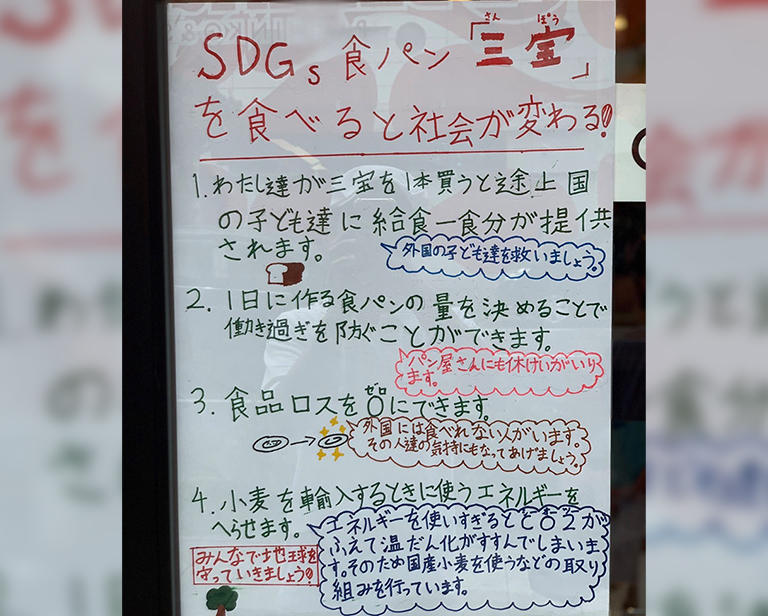 SDGs 食パン「三宝」
さん ぽう
を食べると社会が変わる!
1. わたし達が三宝を1本買うと途上国
の子ども達に給食一食分が提供
されます。
外国の子ども達を救いましょう。
2. 1日に作る食パンの量を決めることで
働き過ぎを防ぐことができます。
パン屋さんにも休けいがいり
ます。
3. 食品ロスを0にできます。
ゼロ
外国には食べれない人がいます。
その人達の気持にもなってあげましょう。
4. 小麦を輸入するときに使うエネルギーを
へらせます。
エネルギーを使いすぎるとCO2が
ふえて温だん化がすすんでしまいま
す。そのため国産小麦を使うなどの取り
組みを行っています。
みんなで地球を
守っていきましょう!